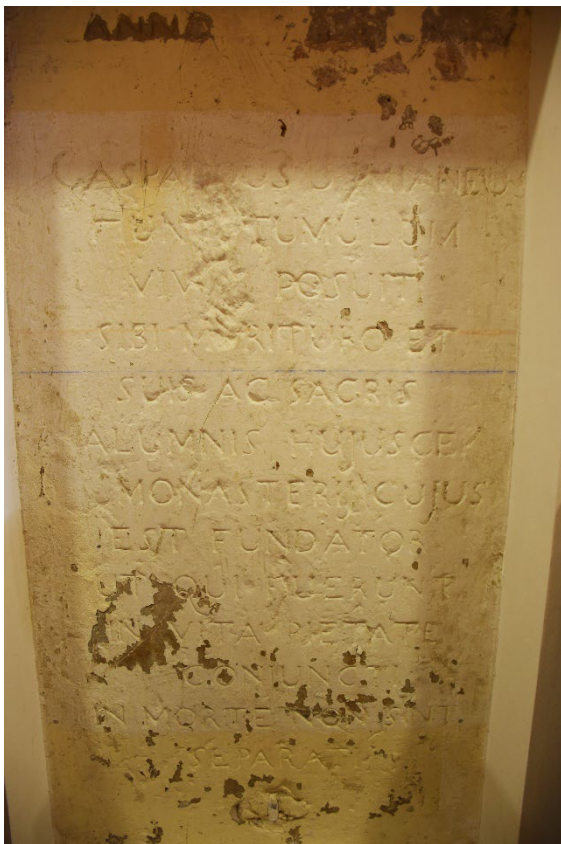 ANNO
HUNC TUMULUM
POSUIT
SIBI MORITURO ET
SUIS AC SACRIS
ALUMNIS HUJUSCE
MONASTERII CUJUS
EST FUNDATOR
UT QUI FUERUNT
IN VITA PIETATE
CONJUNCTI
IN MORTE NON SINT
SEPARATI